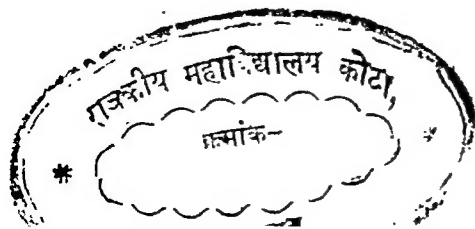 राजकीय महाविद्यालय कोटा,
क्रमांक-